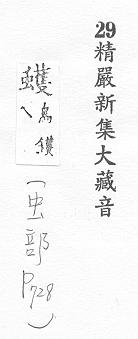 29精嚴新集大藏音
蠖
烏鑊
(虫部 P728)